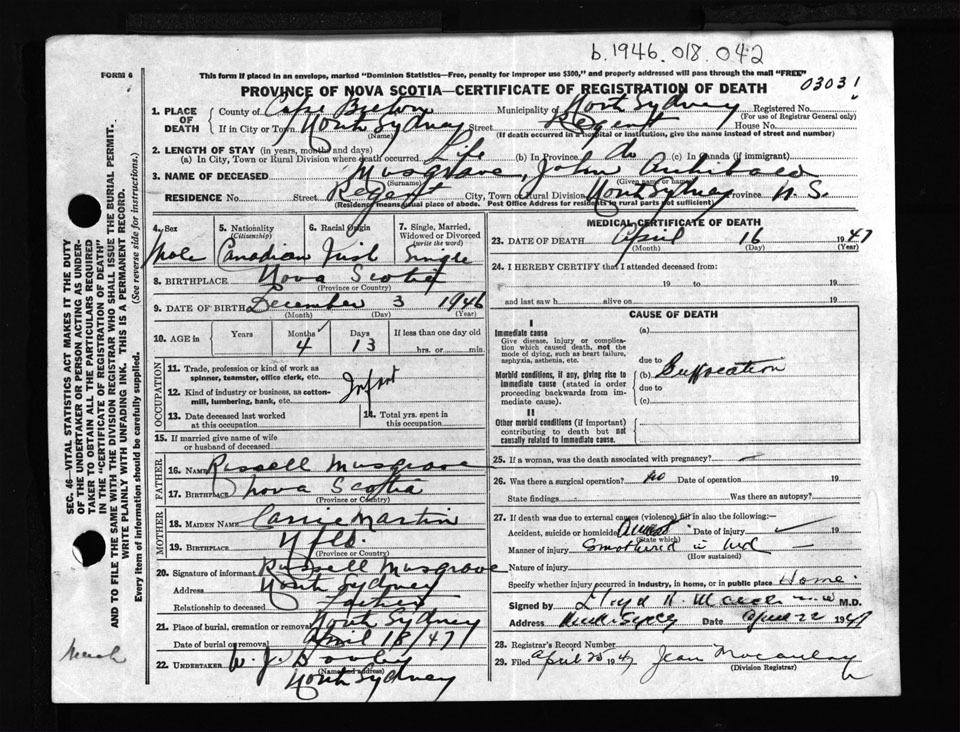 b. 1946. 018. 042
FORM 6
This form if placed in an envelope, marked "Dominion Statistics—Free, penalty for improper use $300," and properly addressed will pass through the mail "FREE"
03031
PROVINCE OF NOVA SCOTIA—CERTIFICATE OF REGISTRATION OF DEATH
1. PLACE OF DEATH
County of Cape Breton Municipality of North Sydney Registered No.
(For use of Registrar General only)
If in City or Town North Sydney Street Regent House No.
(Name) (If death occurred in hospital or institution, give the name instead of street and number)
2. LENGTH OF STAY (in years, months and days)
(a) In City, Town or Rural Division where death occurred Life (b) In Province do (c) In Canada (if immigrant)
3. NAME OF DECEASED Musgrave, John Archibald
(Surname) (Given name or names)
RESIDENCE No. Street Regent City, Town or Rural Division North Sydney Province N.S.
(Residence means usual place of abode. Post Office Address for residents in rural parts not sufficient)
4. Sex
Male
5. Nationality
(Citizenship)
Canadian
6. Racial Origin
Irish
7. Single, Married, Widowed or Divorced
(write the word)
Single
8. BIRTHPLACE Nova Scotia
(Province or Country)
9. DATE OF BIRTH December 3 1946
(Month) (Day) (Year)
10. AGE in Years Months 4 Days 13 If less than one day old
hrs. or min.
OCCUPATION
11. Trade, profession or kind of work as
spinner, teamster, office clerk, etc.
Infant
12. Kind of industry or business, as cotton-
mill, lumbering, bank, etc.
13. Date deceased last worked
at this occupation
14. Total yrs. spent in
this occupation
15. If married give name of wife
or husband of deceased
FATHER
16. NAME Russell Musgrave
17. BIRTHPLACE Nova Scotia
(Province or Country)
MOTHER
18. MAIDEN NAME Carrie Martin
19. BIRTHPLACE Nfld.
(Province or Country)
20. Signature of informant Russell Musgrave
Address North Sydney
Relationship to deceased Father
21. Place of burial, cremation or removal North Sydney
Date of burial or removal April 18/47
22. UNDERTAKER W. J. Dooley
(Name and address)
North Sydney
MEDICAL CERTIFICATE OF DEATH
23. DATE OF DEATH April 16 1947
(Month) (Day) (Year)
24. I HEREBY CERTIFY that I attended deceased from:
19 to 19
and last saw h alive on 19
CAUSE OF DEATH
I
Immediate cause
Give disease, injury or complica-
tion which caused death, not the
mode of dying, such as heart failure,
asphyxia, asthenia, etc.
(a)
due to
Morbid conditions, if any, giving rise to
immediate cause (stated in order
proceeding backwards from im-
mediate cause).
(b) Suffocation
due to
(c)
II
Other morbid conditions (if important)
contributing to death but not
causally related to immediate cause.
25. If a woman, was the death associated with pregnancy? —
26. Was there a surgical operation? no Date of operation 19
State findings Was there an autopsy?
27. If death was due to external causes (violence) fill in also the following:—
Accident, suicide or homicide Date of injury 19
(State which)
Manner of injury Smothered in bed —
(How sustained)
Nature of injury
Specify whether injury occurred in industry, in home, or in public place Home.
Signed by Lloyd H. M.D.
Address Date April 22 1947
28. Registrar's Record Number
29. Filed April 25 1947 Jean Macaulay
(Division Registrar)
SEC. 46—VITAL STATISTICS ACT MAKES IT THE DUTY
OF THE UNDERTAKER OR PERSON ACTING AS UNDER-
TAKER TO OBTAIN ALL THE PARTICULARS REQUIRED
IN THE "CERTIFICATE OF REGISTRATION OF DEATH"
AND TO FILE THE SAME WITH THE DIVISION REGISTRAR WHO SHALL ISSUE THE BURIAL PERMIT.
WRITE PLAINLY WITH UNFADING INK. THIS IS A PERMANENT RECORD.
Every item of information should be carefully supplied. (See reverse side for instructions.)